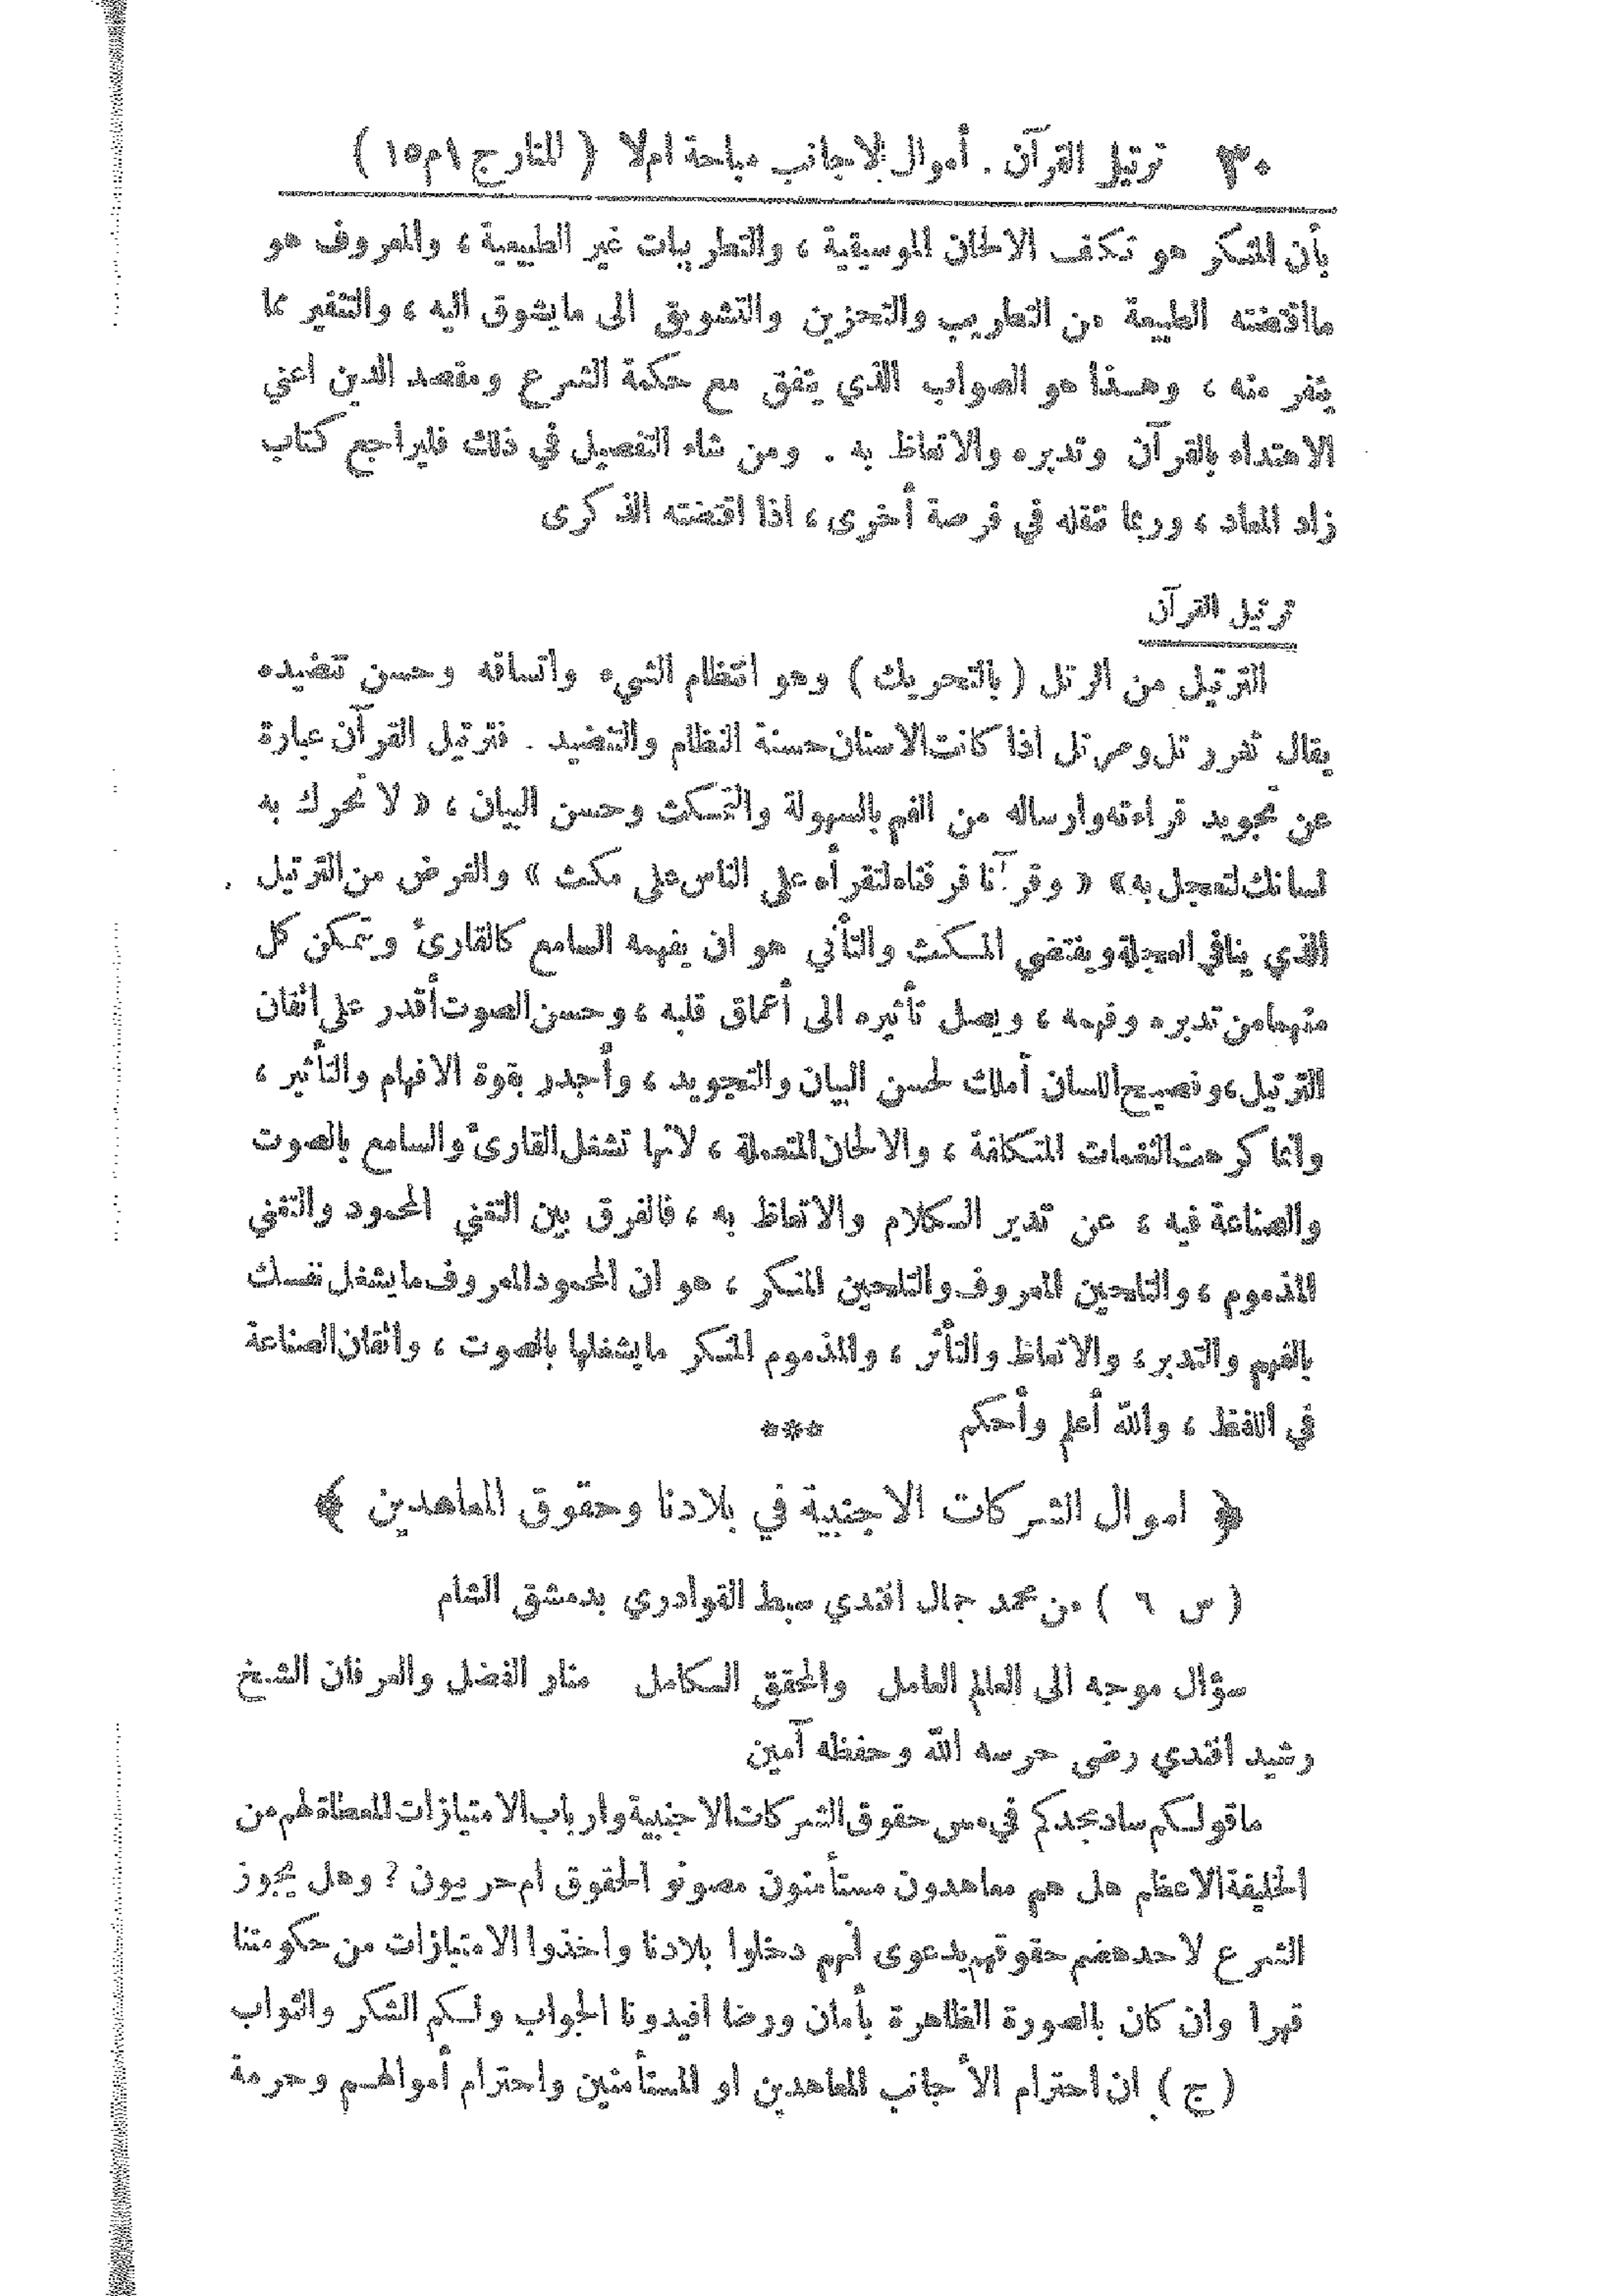 ٣٠ ترتيل القرآن . أموال الاجانب مباحة ام لا ( المنار ج ١ م ١٥ )
بأن المنكر هو تكلف الالحان الموسيقية ، والتطريبات غير الطبيعية ، والمعروف هو
مااقتضته الطبيعة من التطريب والتحزين والتشويق الى مايشوق اليه ، والتنفير عما
ينفر منه ، وهـذا هو الصواب الذي يتفق مع حكمة الشرع ومقصد الدين اعني
الاهتداء بالقرآن وتدبره والاتعاظ به . ومن شاء التفصيل في ذلك فليراجع كتاب
زاد المعاد ، وربما ننقله في فرصة أخرى ، اذا اقتضته الذكرى
ترتيل القرآن
الترتيل من الرتل ( بالتحريك ) وهو انتظام الشيء واتساقه وحسن تنضيده
يقال ثغر رتل ومرتل اذا كانت الاسنان حسنة النظام والتنضيد . فترتيل القرآن عبارة
عن تجويد قراءته وارساله من الفم بالسهولة والتمكث وحسن البيان ، « لا تحرك به
لسانك لتعجل به » « وقرآنا فرقناه لتقرأه على الناس على مكث » والغرض من الترتيل
الذي ينافي العجلة ويقتضي المكث والتأني هو ان يفهمه السامع كالقارئ ويتمكن كل
منهما من تدبره وفهمه ، ويصل تأثيره الى أعماق قلبه ، وحسن الصوت أقدر على اتقان
الترتيل ، وفصيح اللسان أملك لحسن البيان والتجويد ، وأجدر بقوة الافهام والتأثير ،
وانما كرهت النغمات المتكلفة ، والالحان المتعملة ، لانها تشغل القارئ والسامع بالصوت
والصناعة فيه ، عن تدبر الـكلام والاتعاظ به ، فالفرق بين التغني المحمود والتغني
المذموم ، والتلحين المعروف والتلحين المنكر ، هو ان المحمود المعروف مايشغل نفسك
بالفهم والتدبر ، والاتعاظ والتأثر ، والمذموم المنكر مايشغلها بالصوت ، واتقان الصناعة
في اللفظ ، والله أعلم وأحكم
***
﴿ اموال الشركات الاجنبية في بلادنا وحقوق المعاهدين ﴾
( س ٦ ) من محمد جمال افندي سبط القوادري بدمشق الشام
سؤال موجه الى العالم العامل والمحقق الـكامل منار الفضل والعرفان الشيخ
رشيد افندي رضى حرسه الله وحفظه آمين
ماقولـكم ساد مجدكم في مس حقوق الشركات الاجنبية وارباب الامتيازات المعطاة لهم من
الخليفة الاعظم هل هم معاهدون مستأمنون مصونو الحقوق ام حربيون ؟ وهل يجوز
الشرع لاحد هضم حقوقهم بدعوى انهم دخلوا بلادنا واخذوا الامتيازات من حكومتنا
قهرا وان كان بالصورة الظاهرة بأمان ورضا افيدونا الجواب ولـكم الشكر والثواب
( ج ) ان احترام الأجانب المعاهدين او المستأمنين واحترام أموالهـم وحرمة